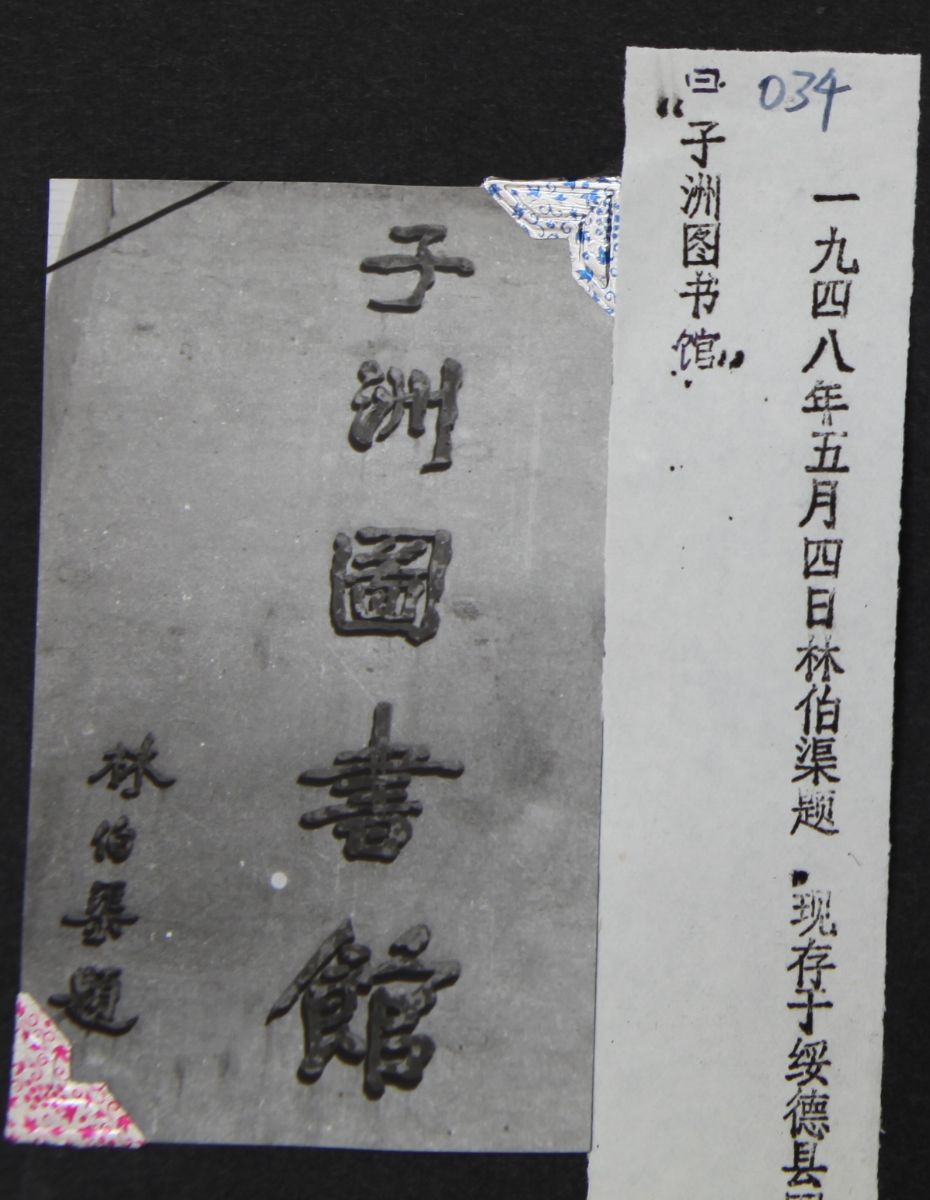 子洲圖書館
林伯渠題
034
一九四八年五月四日林伯渠题 现存于绥德县
曰“子洲图书馆”.